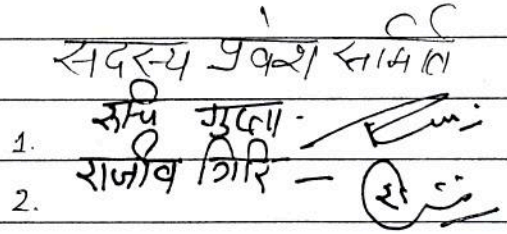 सदस्य प्रवेश समिति
1. रूचि गुप्ता -
2. राजीव गिरि -